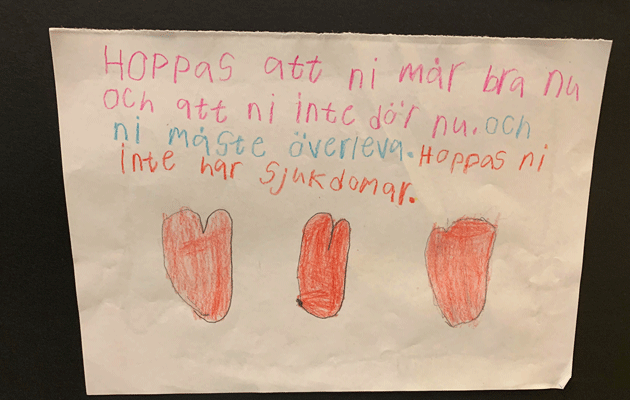 HOPPas att ni mår bra nu
och att ni inte dör nu. och
ni måste överleva. Hoppas ni
inte har sjukdomar.